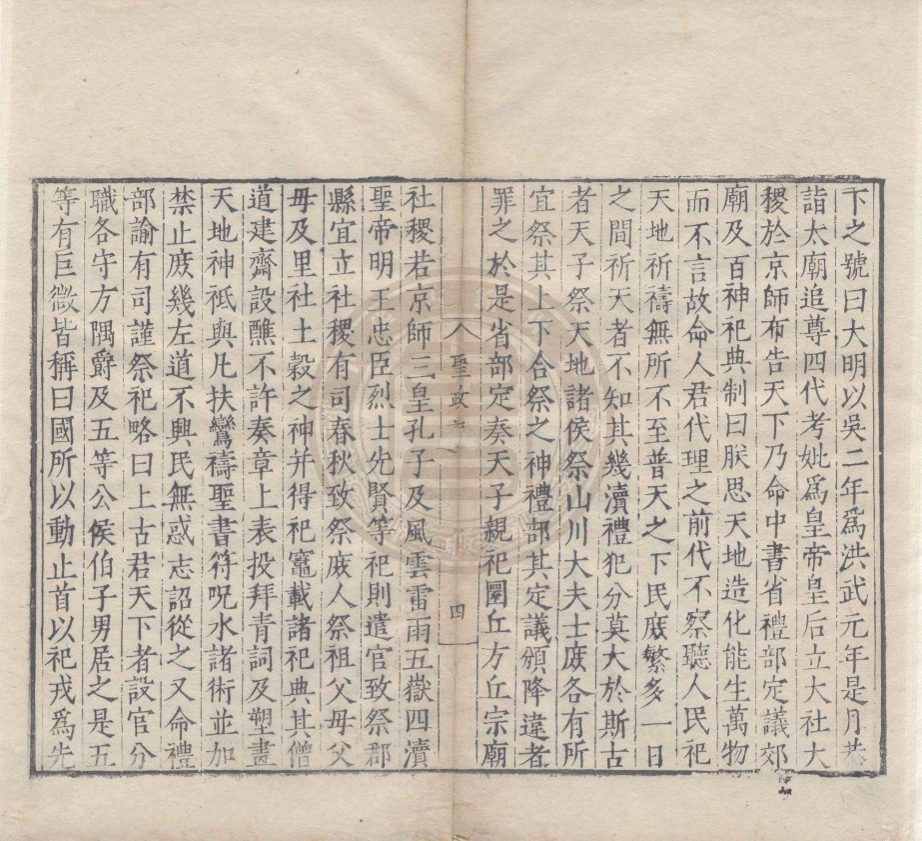 下之號曰大明以吳二年爲洪武元年是月恭
詣太廟追尊四代考妣爲皇帝皇后立大社大
稷於京師布告天下乃命中書省禮部定議郊
廟及百神祀典制曰朕思天地造化能生萬物
而不言故命人君代理之前代不察聽人民祀
天地祈禱無所不至普天之下民庶繁多一日
之間祈天者不知其幾瀆禮犯分莫大於斯古
者天子祭天地諸侯祭山川大夫士庶各有所
宜祭其上下合祭之神禮部其定議頒降違者
罪之於是省部定奏天子親祀圜丘方丘宗廟
聖政
四
社稷若京師三皇孔子及風雲雷雨五嶽四瀆
聖帝明王忠臣烈士先賢等祀則遣官致祭郡
縣宜立社稷有司春秋致祭庶人祭祖父母父
母及里社土穀之神并得祀竈載諸祀典其僧
道建齋設醮不許奏章上表投拜青詞及塑畫
天地神祇與凡扶鸞禱聖書符呪水諸術並加
禁止庶幾左道不興民無惑志詔從之又命禮
部諭有司謹祭祀略曰上古君天下者設官分
職各守方隅爵及五等公侯伯子男居之是五
等有巨微皆稱曰國所以動止首以祀戎爲先